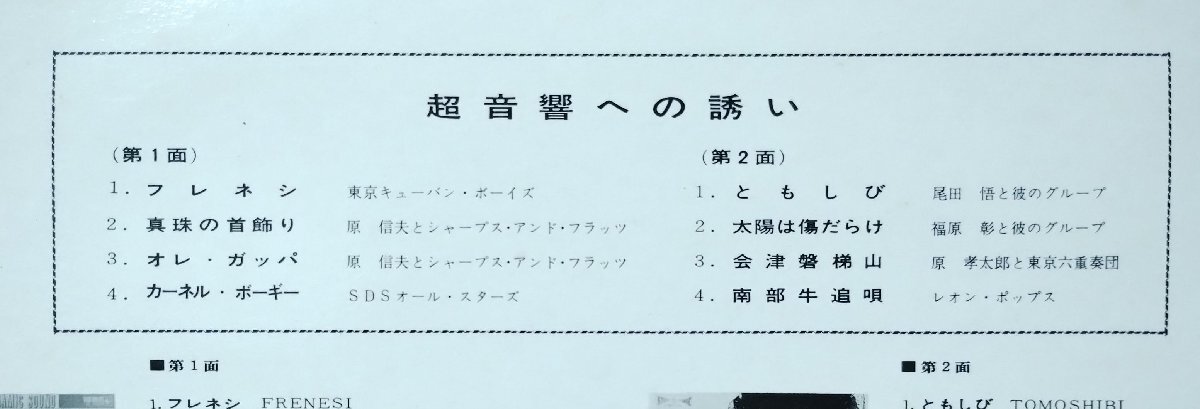 超音響への誘い
(第1面)
1. フレネシ 東京キューバン・ボーイズ
2. 真珠の首飾り 原 信夫とシャープス・アンド・フラッツ
3. オレ・ガッパ 原 信夫とシャープス・アンド・フラッツ
4. カーネル・ボーギー SDSオール・スターズ
(第2面)
1. ともしび 尾田 悟と彼のグループ
2. 太陽は傷だらけ 福原 彰と彼のグループ
3. 会津磐梯山 原 孝太郎と東京六重奏団
4. 南部牛追唄 レオン・ポップス
■第1面
1. フレネシ FRENESI
■第2面
1. ともしび TOMOSHIBI